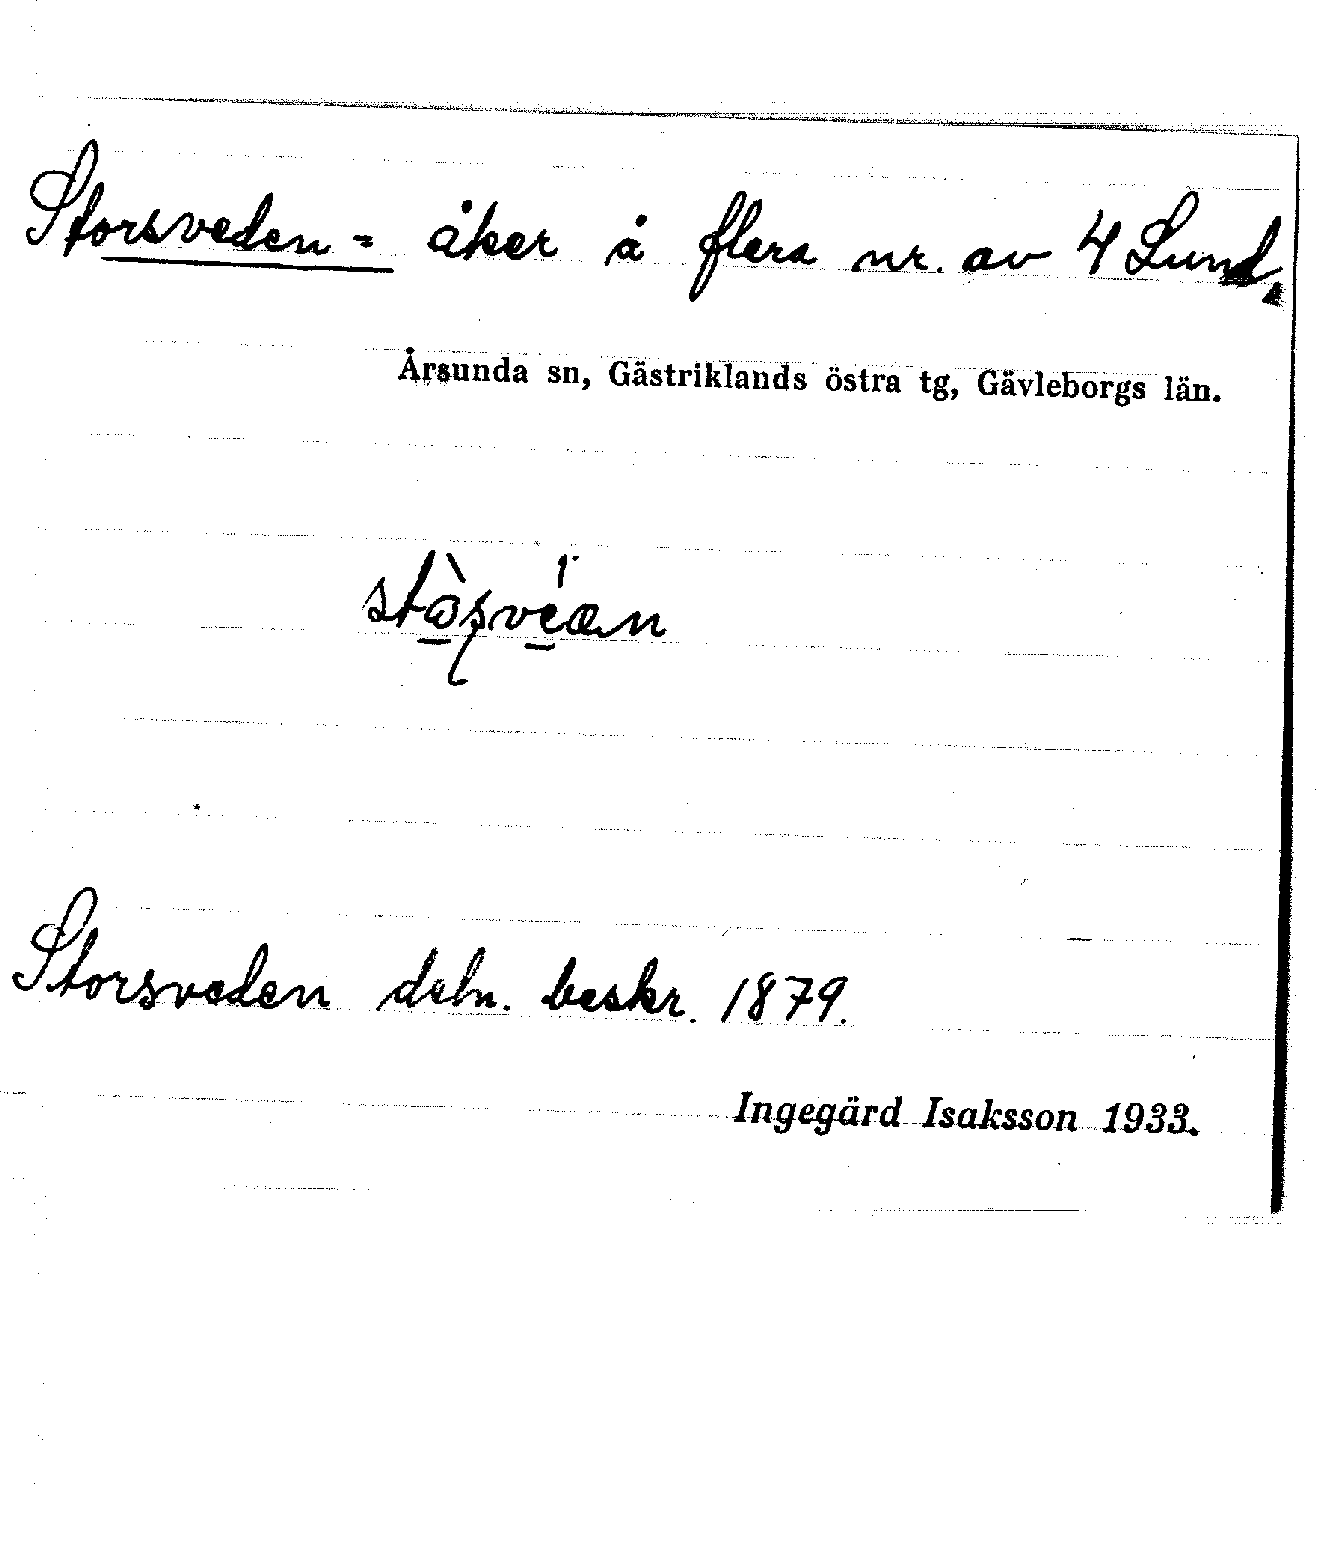 Storsveden = åker å flera nr. av 4 Lund.
Årsunda sn, Gästriklands östra tg, Gävleborgs län.
Storsveden deln. beskr. 1879.
Ingegärd Isaksson 1933.